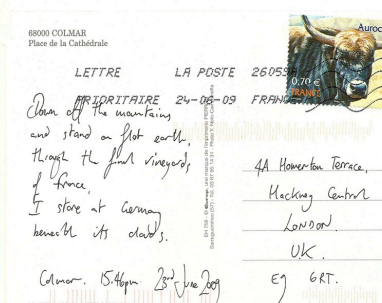 68000 COLMAR
Place de la Cathédrale
Auroc
0,70 €
FRANCE
LETTRE LA POSTE 26059
PRIORITAIRE 24-06-09 FRANCE
Down off the mountains
and stand on flat earth,
through the final vineyards
of France,
I stare at Germany
beneath its clouds.
Colmar. 15.46pm. 23rd June 2009
4A Homerton Terrace,
Hackney Central
LONDON.
U.K.
E9 6RT.